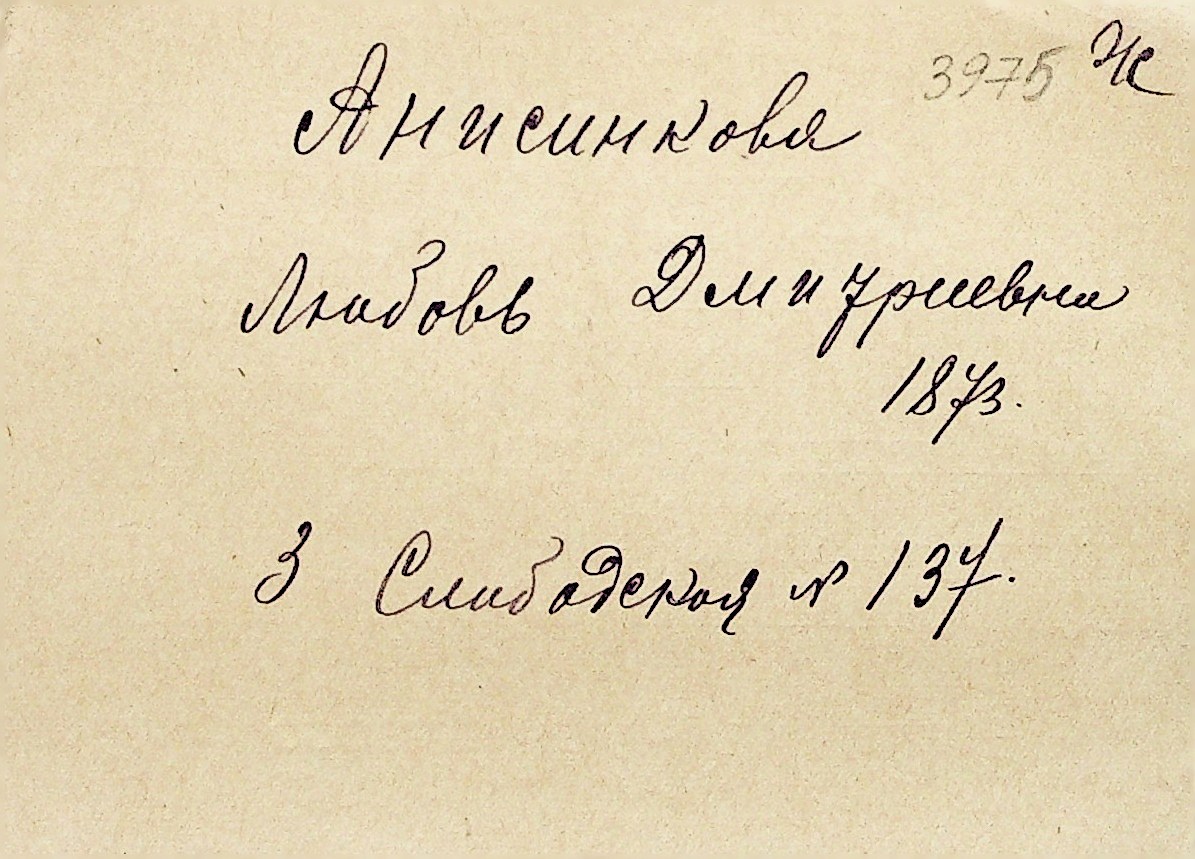 3975 Ж
Анисинкова
Любовь Дмитриевна
1873.
3 Слободская № 137.